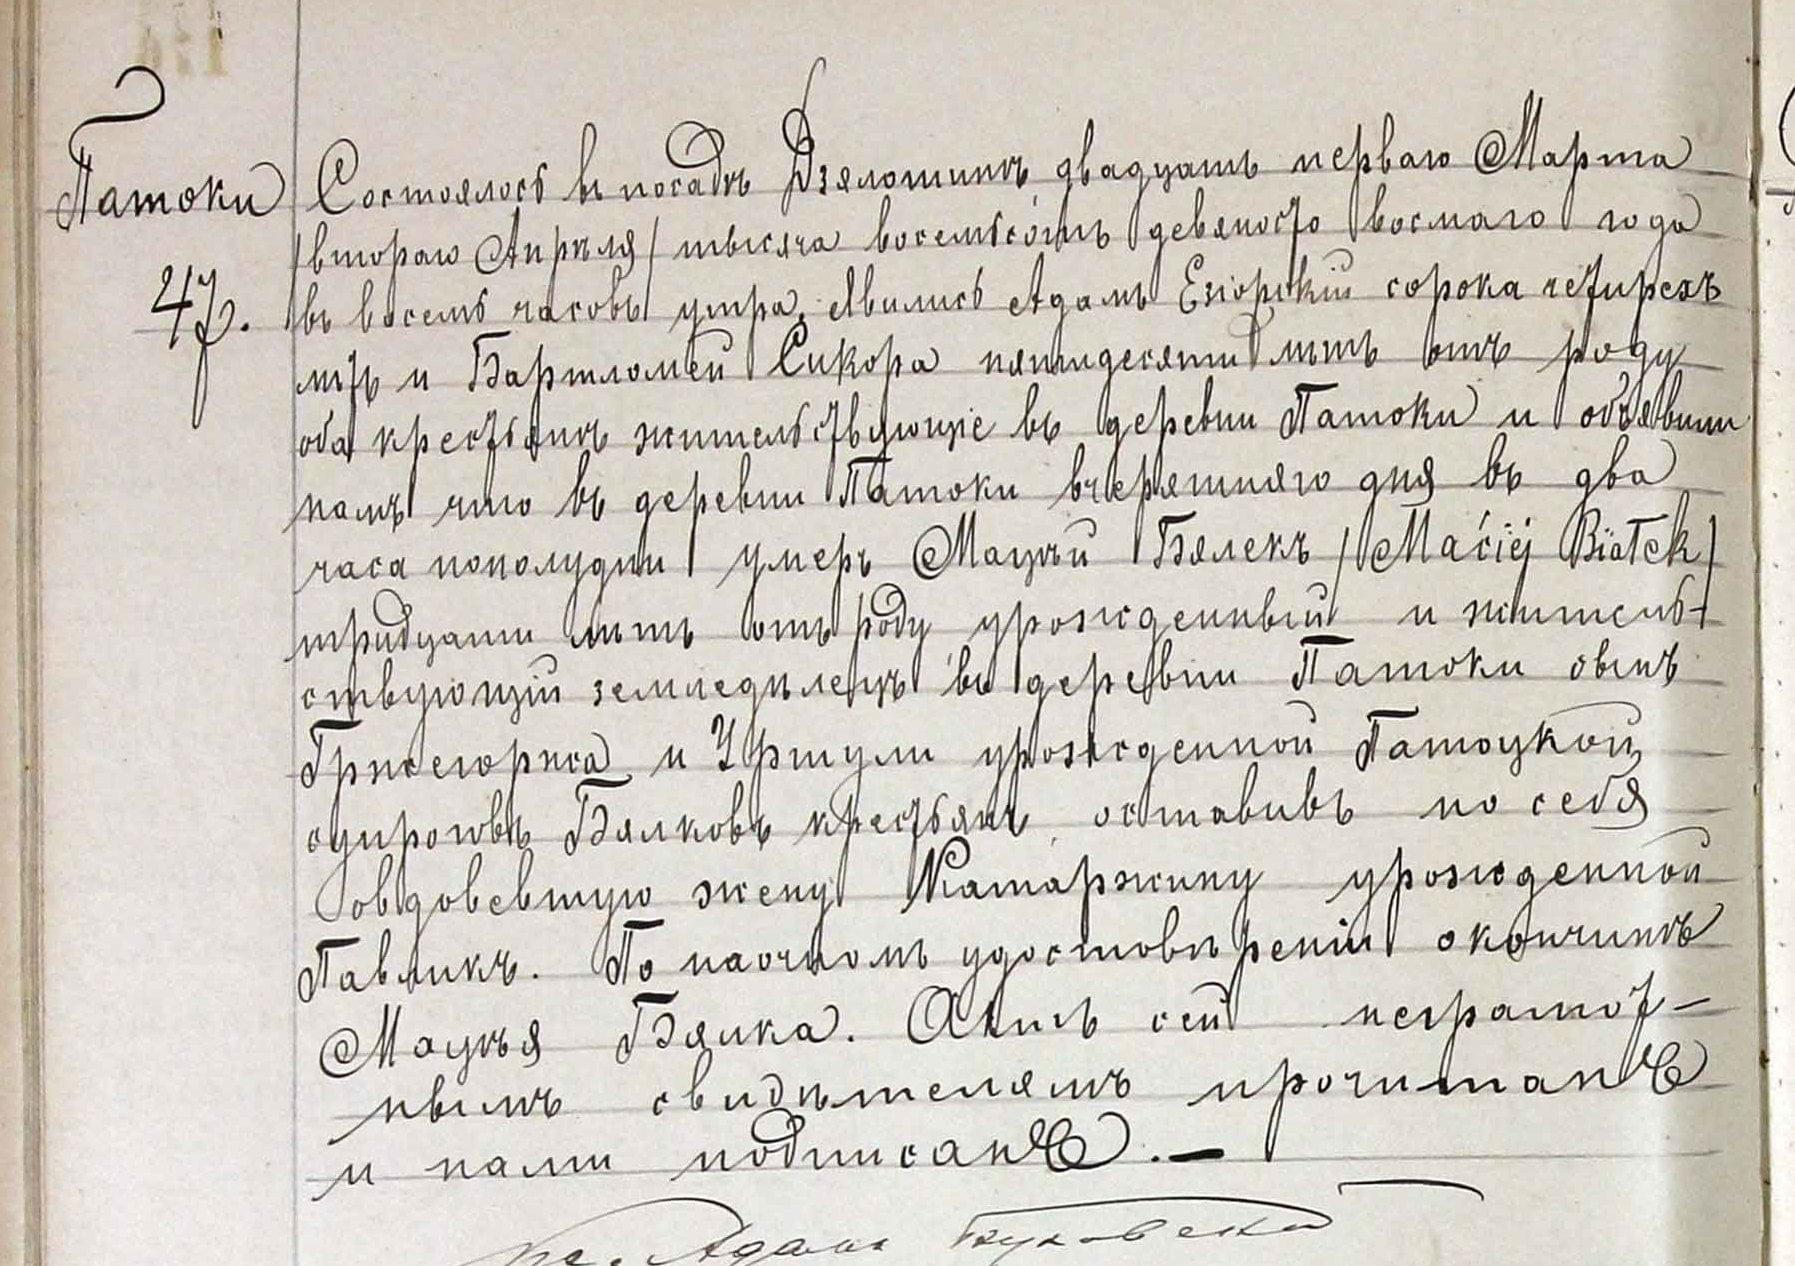 Патоки
47.
Состоялось въ посадѣ Дзялошинѣ двадцать перваго Марта
/втораго Апрѣля/ тысяча восемьсотъ девяносто восмаго года
въ восемь часовъ утра. Явились Адамъ Езіорскій сорока четырехъ
лѣтъ и Бартломей Сикора пятидесяти лѣтъ отъ роду
оба крестьянѣ жительствующіе въ деревни Патоки и объявили
намъ что въ деревни Патоки вчерашняго дня въ два
часа пополудни умеръ Мацѣй Бялекъ /Maciej Białek/
тридцати лѣтъ отъ роду урожденный и житель-
ствующій земледѣлецъ въ деревни Патоки сынъ
Гржегоржа и Уршули урожденной Патоцкой
супроговъ Бялковъ крестьянъ оставивъ по себя
овдовевшую жену Катаржину урожденной
Павликъ. По наочномъ удостовѣреніи о кончинѣ
Мацѣя Бялка. Актъ сей неграмот-
нымъ свидѣтелямъ прочитанъ
и нами подписанъ. —
Адамъ